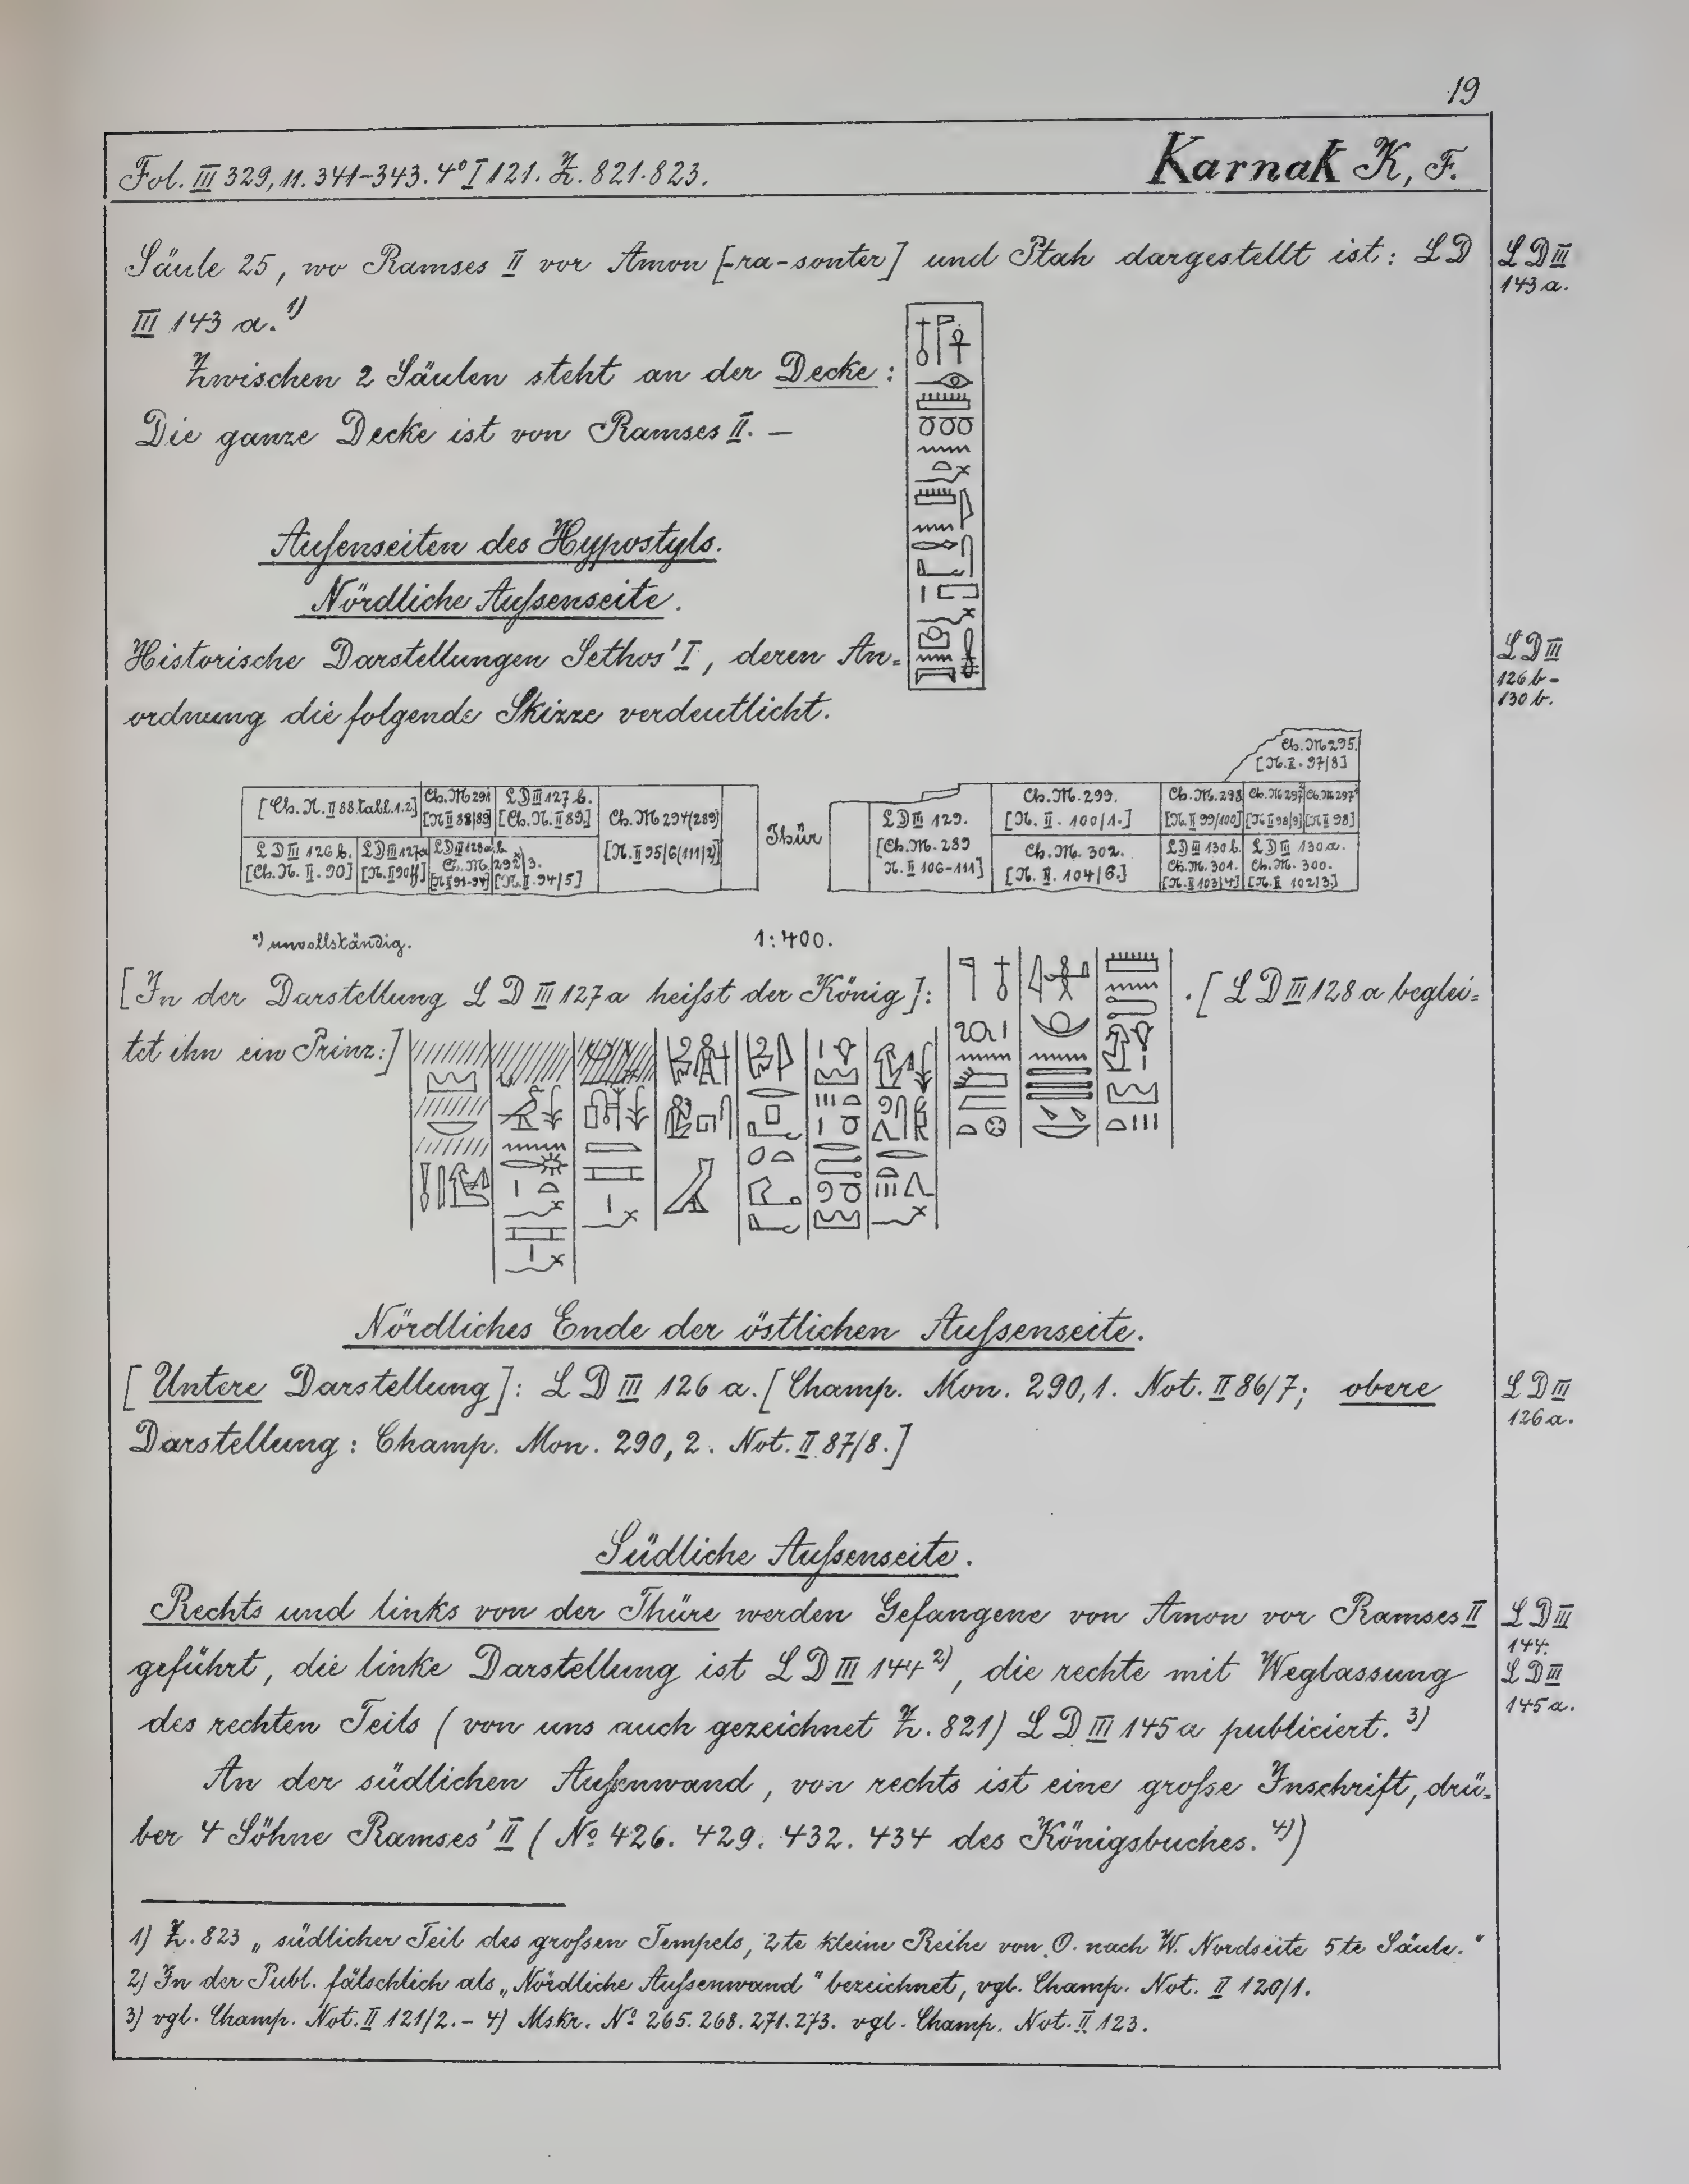 19
Fol. III 329, 11. 341-343. 4° I 121. Z. 821. 823.
Karnak K, F.
Säule 25, wo Ramses II vor Amon [-ra-sonter] und Ptah dargestellt ist: LD
III 143 a. 1)
LD III
143 a.
Zwischen 2 Säulen steht an der Decke:
Die ganze Decke ist von Ramses II. —
Außenseiten des Hypostyls.
Nördliche Außenseite.
Historische Darstellungen Sethos' I, deren An-
ordnung die folgende Skizze verdeutlicht.
LD III
126 b -
130 b.
Ch. M 295.
[N. II. 97/8]
[Ch. N. II 88 tabl. 1.2]
Ch. M 291
[N II 88/89]
LD III 127 b.
[Ch. N. II 89.]
Ch. M 294 (289)
[N. II 95/6 (111/2)]
LD III 126 b.
[Ch. N. II. 90]
LD III 127a
[N. II 90 ff]
LD III 128a.b.
Ch. M. 292*)3.
[N II 91-94]
[N. II. 94/5]
Thür
LD III 129.
[Ch. M. 289
N. II 106-111]
Ch. M. 299.
[N. II. 100/1.]
Ch. M. 302.
[N. II. 104/6.]
Ch. M. 298
[N. II 99/100]
Ch. M 297
[N. II 98/9]
Ch. M 297
[N II 98]
LD III 130 b.
Ch. M. 301.
[N. II 103/4]
LD III 130 a.
Ch. M. 300.
[N. II 102/3.]
*) unvollständig.
1:400.
[In der Darstellung LD III 127 a heißt der König]:
. [LD III 128 a beglei-
tet ihn ein Prinz:]
Nördliches Ende der östlichen Außenseite.
[Untere Darstellung]: LD III 126 a. [Champ. Mon. 290, 1. Not. II 86/7; obere
Darstellung: Champ. Mon. 290, 2. Not. II 87/8.]
LD III
126 a.
Südliche Außenseite.
Rechts und links von der Thüre werden Gefangene von Amon vor Ramses II
geführt, die linke Darstellung ist LD III 144 2), die rechte mit Weglassung
des rechten Teils (von uns auch gezeichnet Z. 821) LD III 145 a publiciert. 3)
LD III
144.
LD III
145 a.
An der südlichen Außenwand, von rechts ist eine große Inschrift, drü-
ber 4 Söhne Ramses' II (No 426. 429. 432. 434 des Königsbuches. 4))
1) Z. 823 „südlicher Teil des großen Tempels, 2te kleine Reihe von O. nach W. Nordseite 5te Säule."
2) In der Publ. fälschlich als „Nördliche Außenwand" bezeichnet, vgl. Champ. Not. II 120/1.
3) vgl. Champ. Not. II 121/2. - 4) Mskr. No 265. 268. 271. 273. vgl. Champ. Not. II 123.